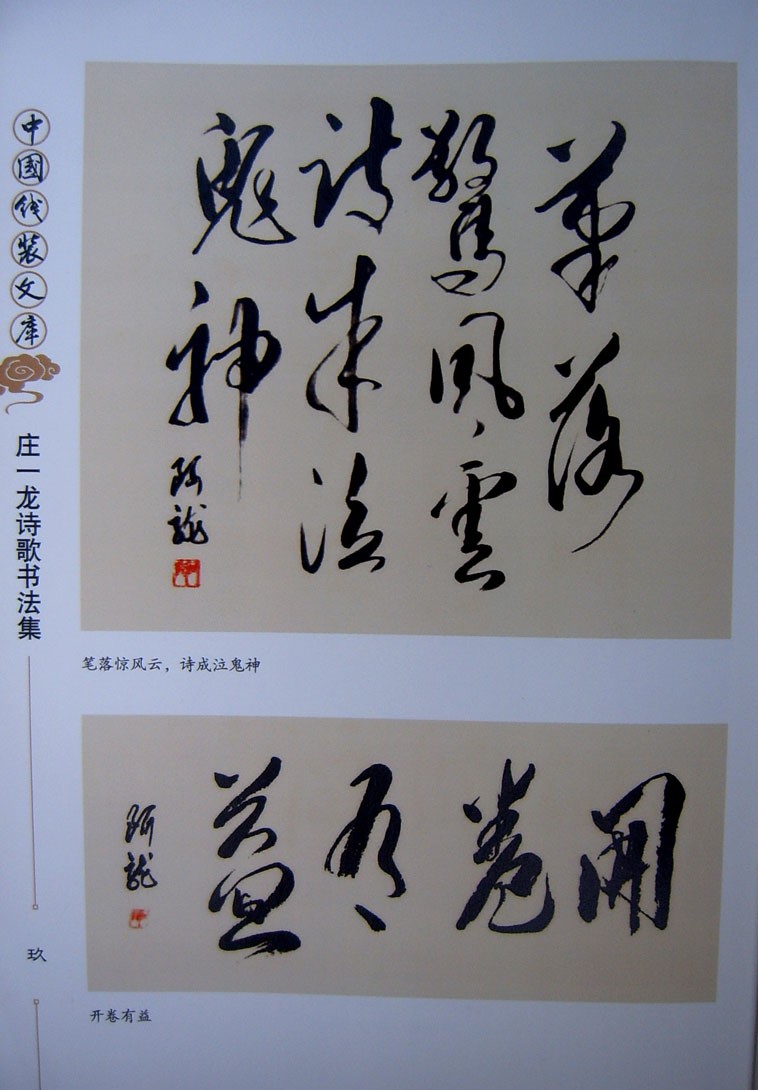 中国线装文库
庄一龙诗歌书法集
玖
筆落
驚風雲
詩成泣
鬼神
阿龍
笔落惊风云，诗成泣鬼神
開卷有益
阿龍
开卷有益